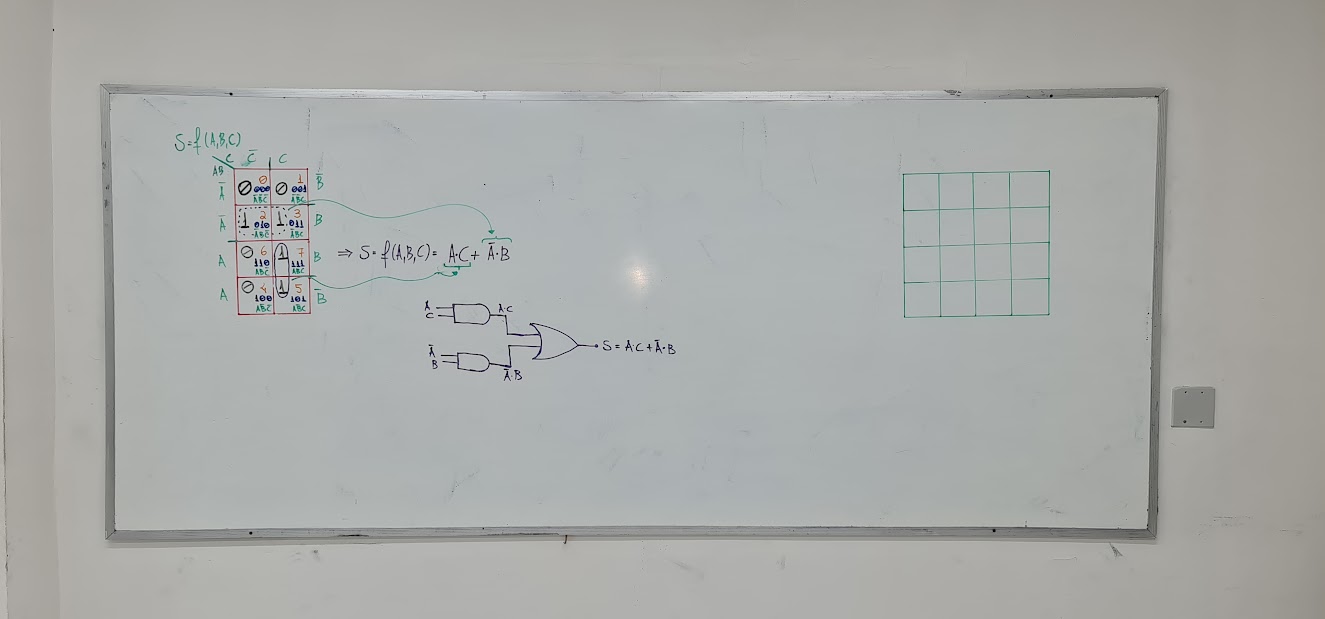 S=f(A,B,C)
C C̅ C
AB
A̅ 0 0 000 A̅B̅C̅ 0 1 001 A̅B̅C B̅
A̅ 1 2 010 A̅BC̅ 1 3 011 A̅BC B
A 0 6 110 ABC̅ 1 7 111 ABC B
A 0 4 100 AB̅C̅ 1 5 101 AB̅C B̅
⇒ S=f(A,B,C)= A·C + A̅·B
A
C
A·C
A̅
B
A̅·B
S= A·C+A̅·B